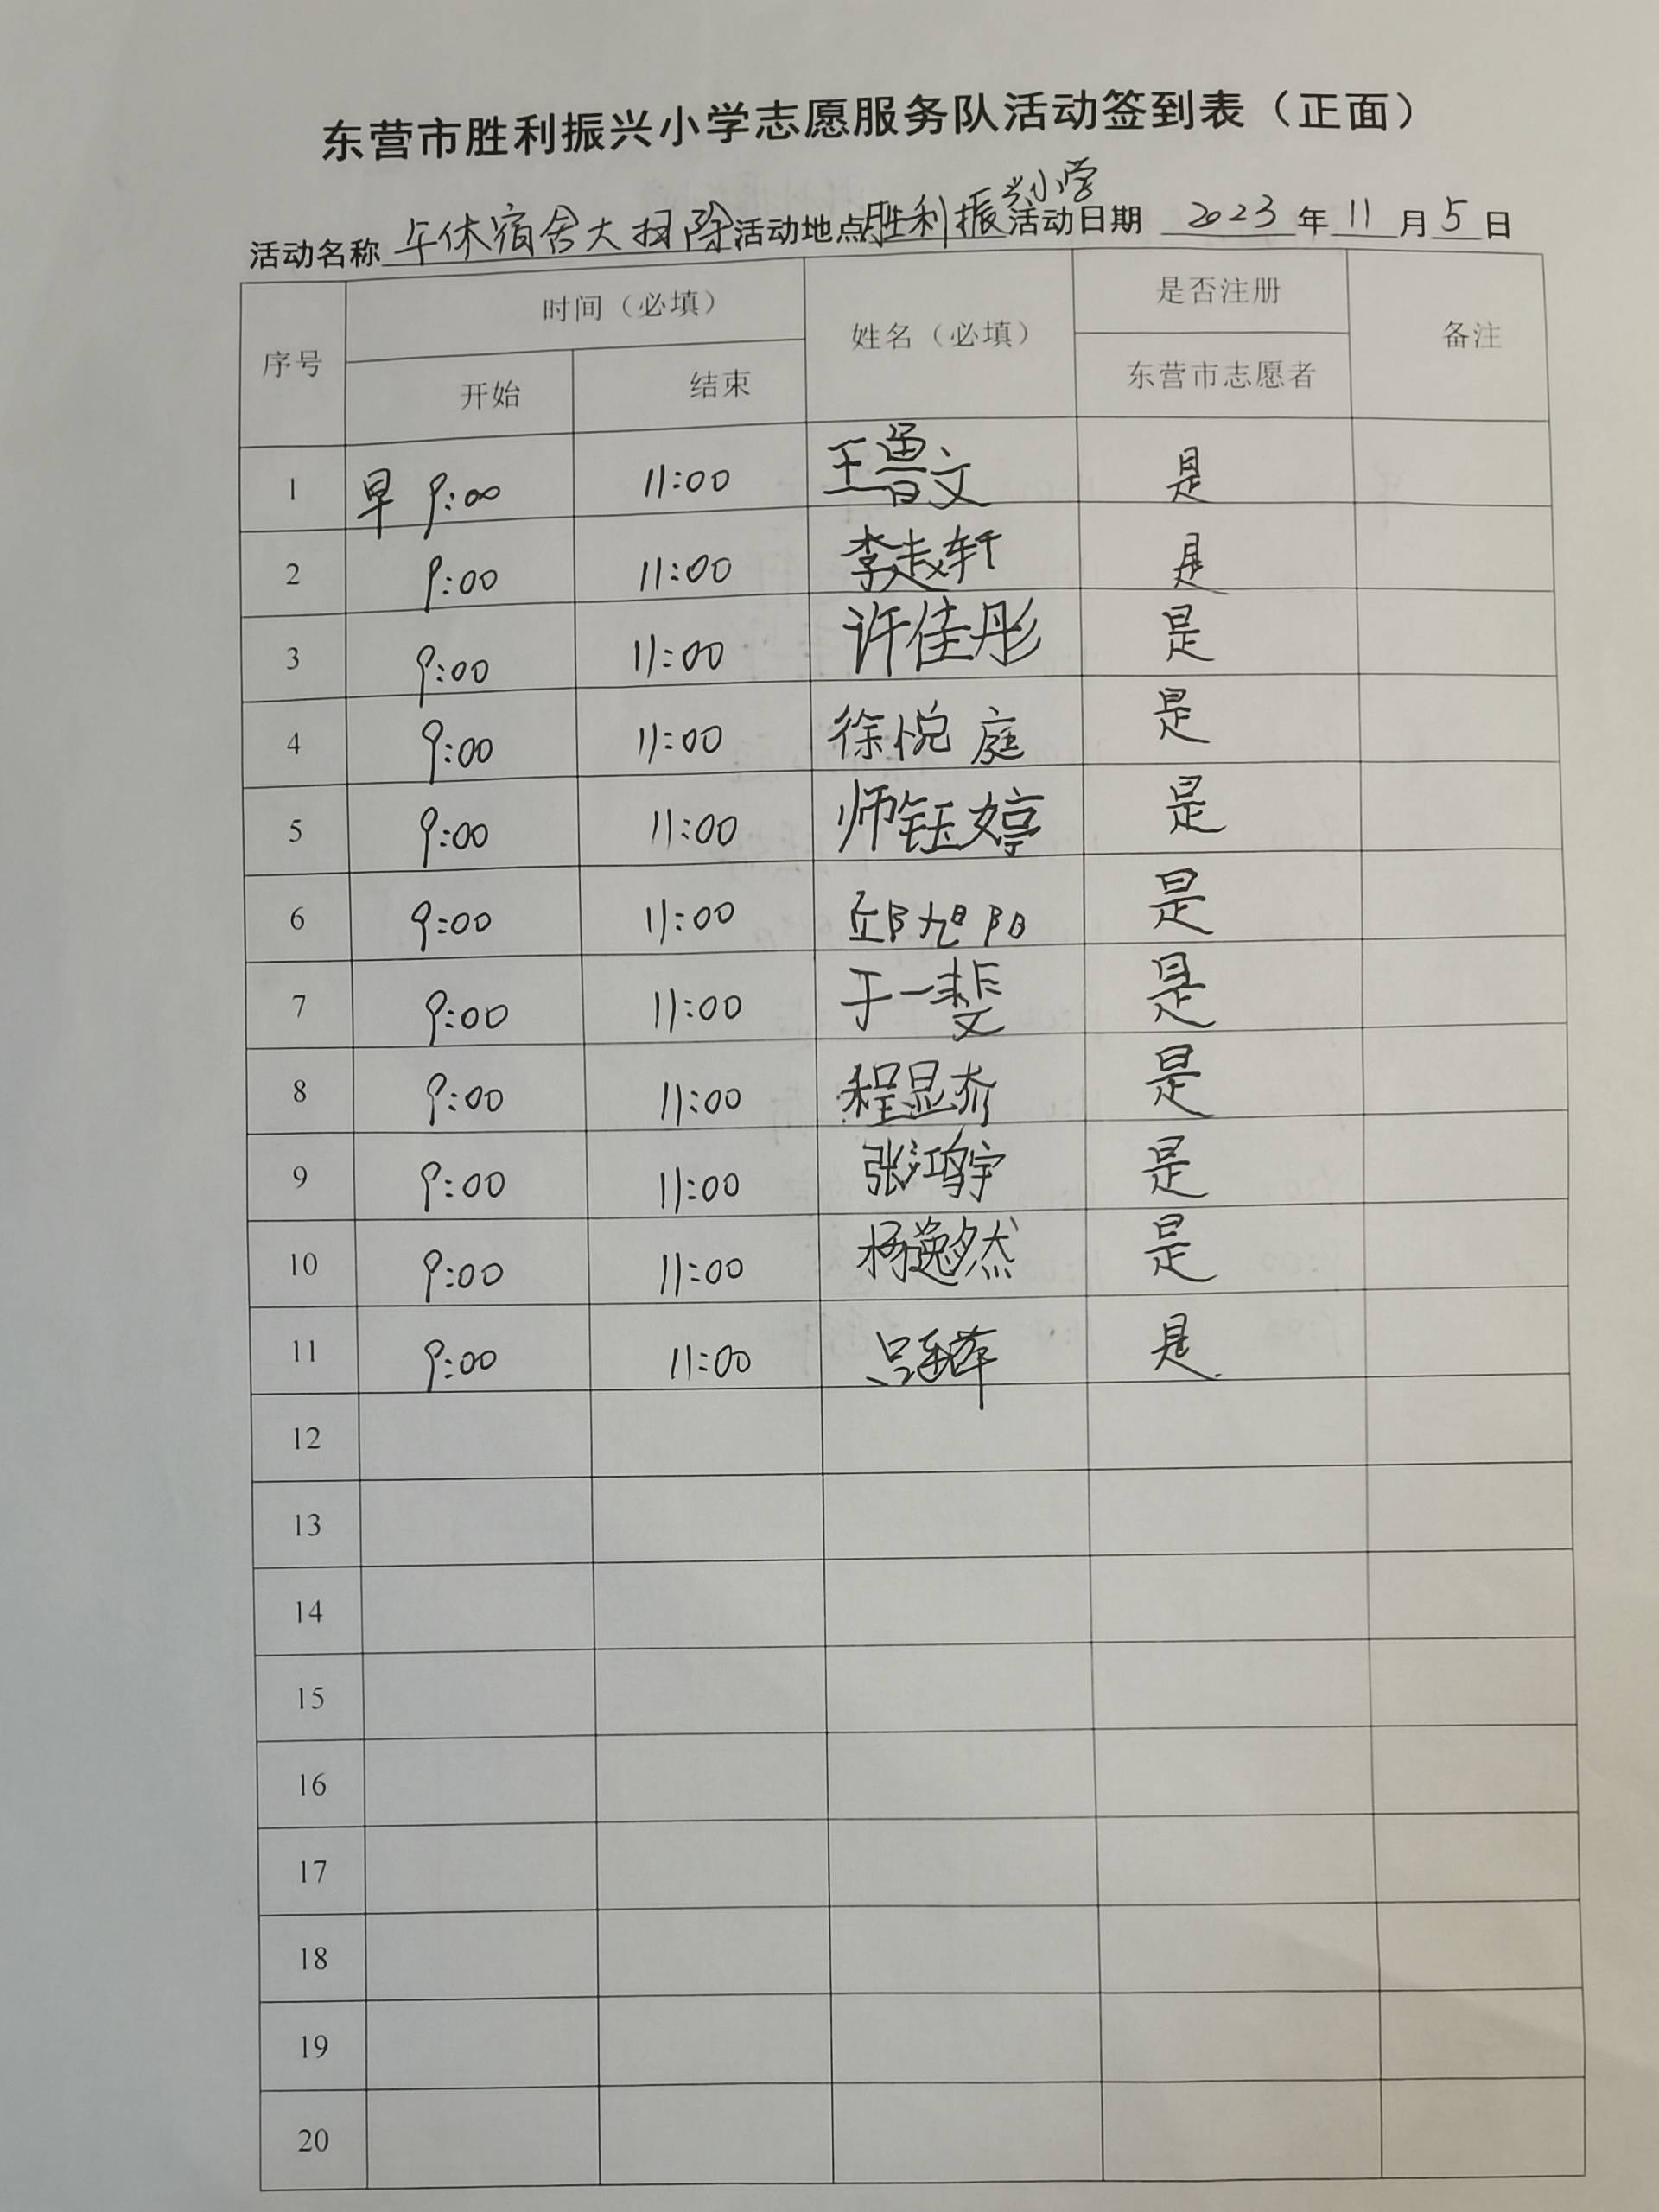 东营市胜利振兴小学志愿服务队活动签到表（正面）
活动名称 午休宿舍大扫除 活动地点 胜利振兴小学 活动日期 2023 年 11 月 5 日
序号 时间（必填） 姓名（必填） 是否注册 备注
开始 结束 东营市志愿者
1 早 9:00 11:00 王鲁文 是
2 9:00 11:00 李赵轩 是
3 9:00 11:00 许佳彤 是
4 9:00 11:00 徐悦庭 是
5 9:00 11:00 师钰婷 是
6 9:00 11:00 邱旭阳 是
7 9:00 11:00 于一斐 是
8 9:00 11:00 程显 是
9 9:00 11:00 张鸿宇 是
10 9:00 11:00 杨逸然 是
11 9:00 11:00 吕 萍 是
12
13
14
15
16
17
18
19
20